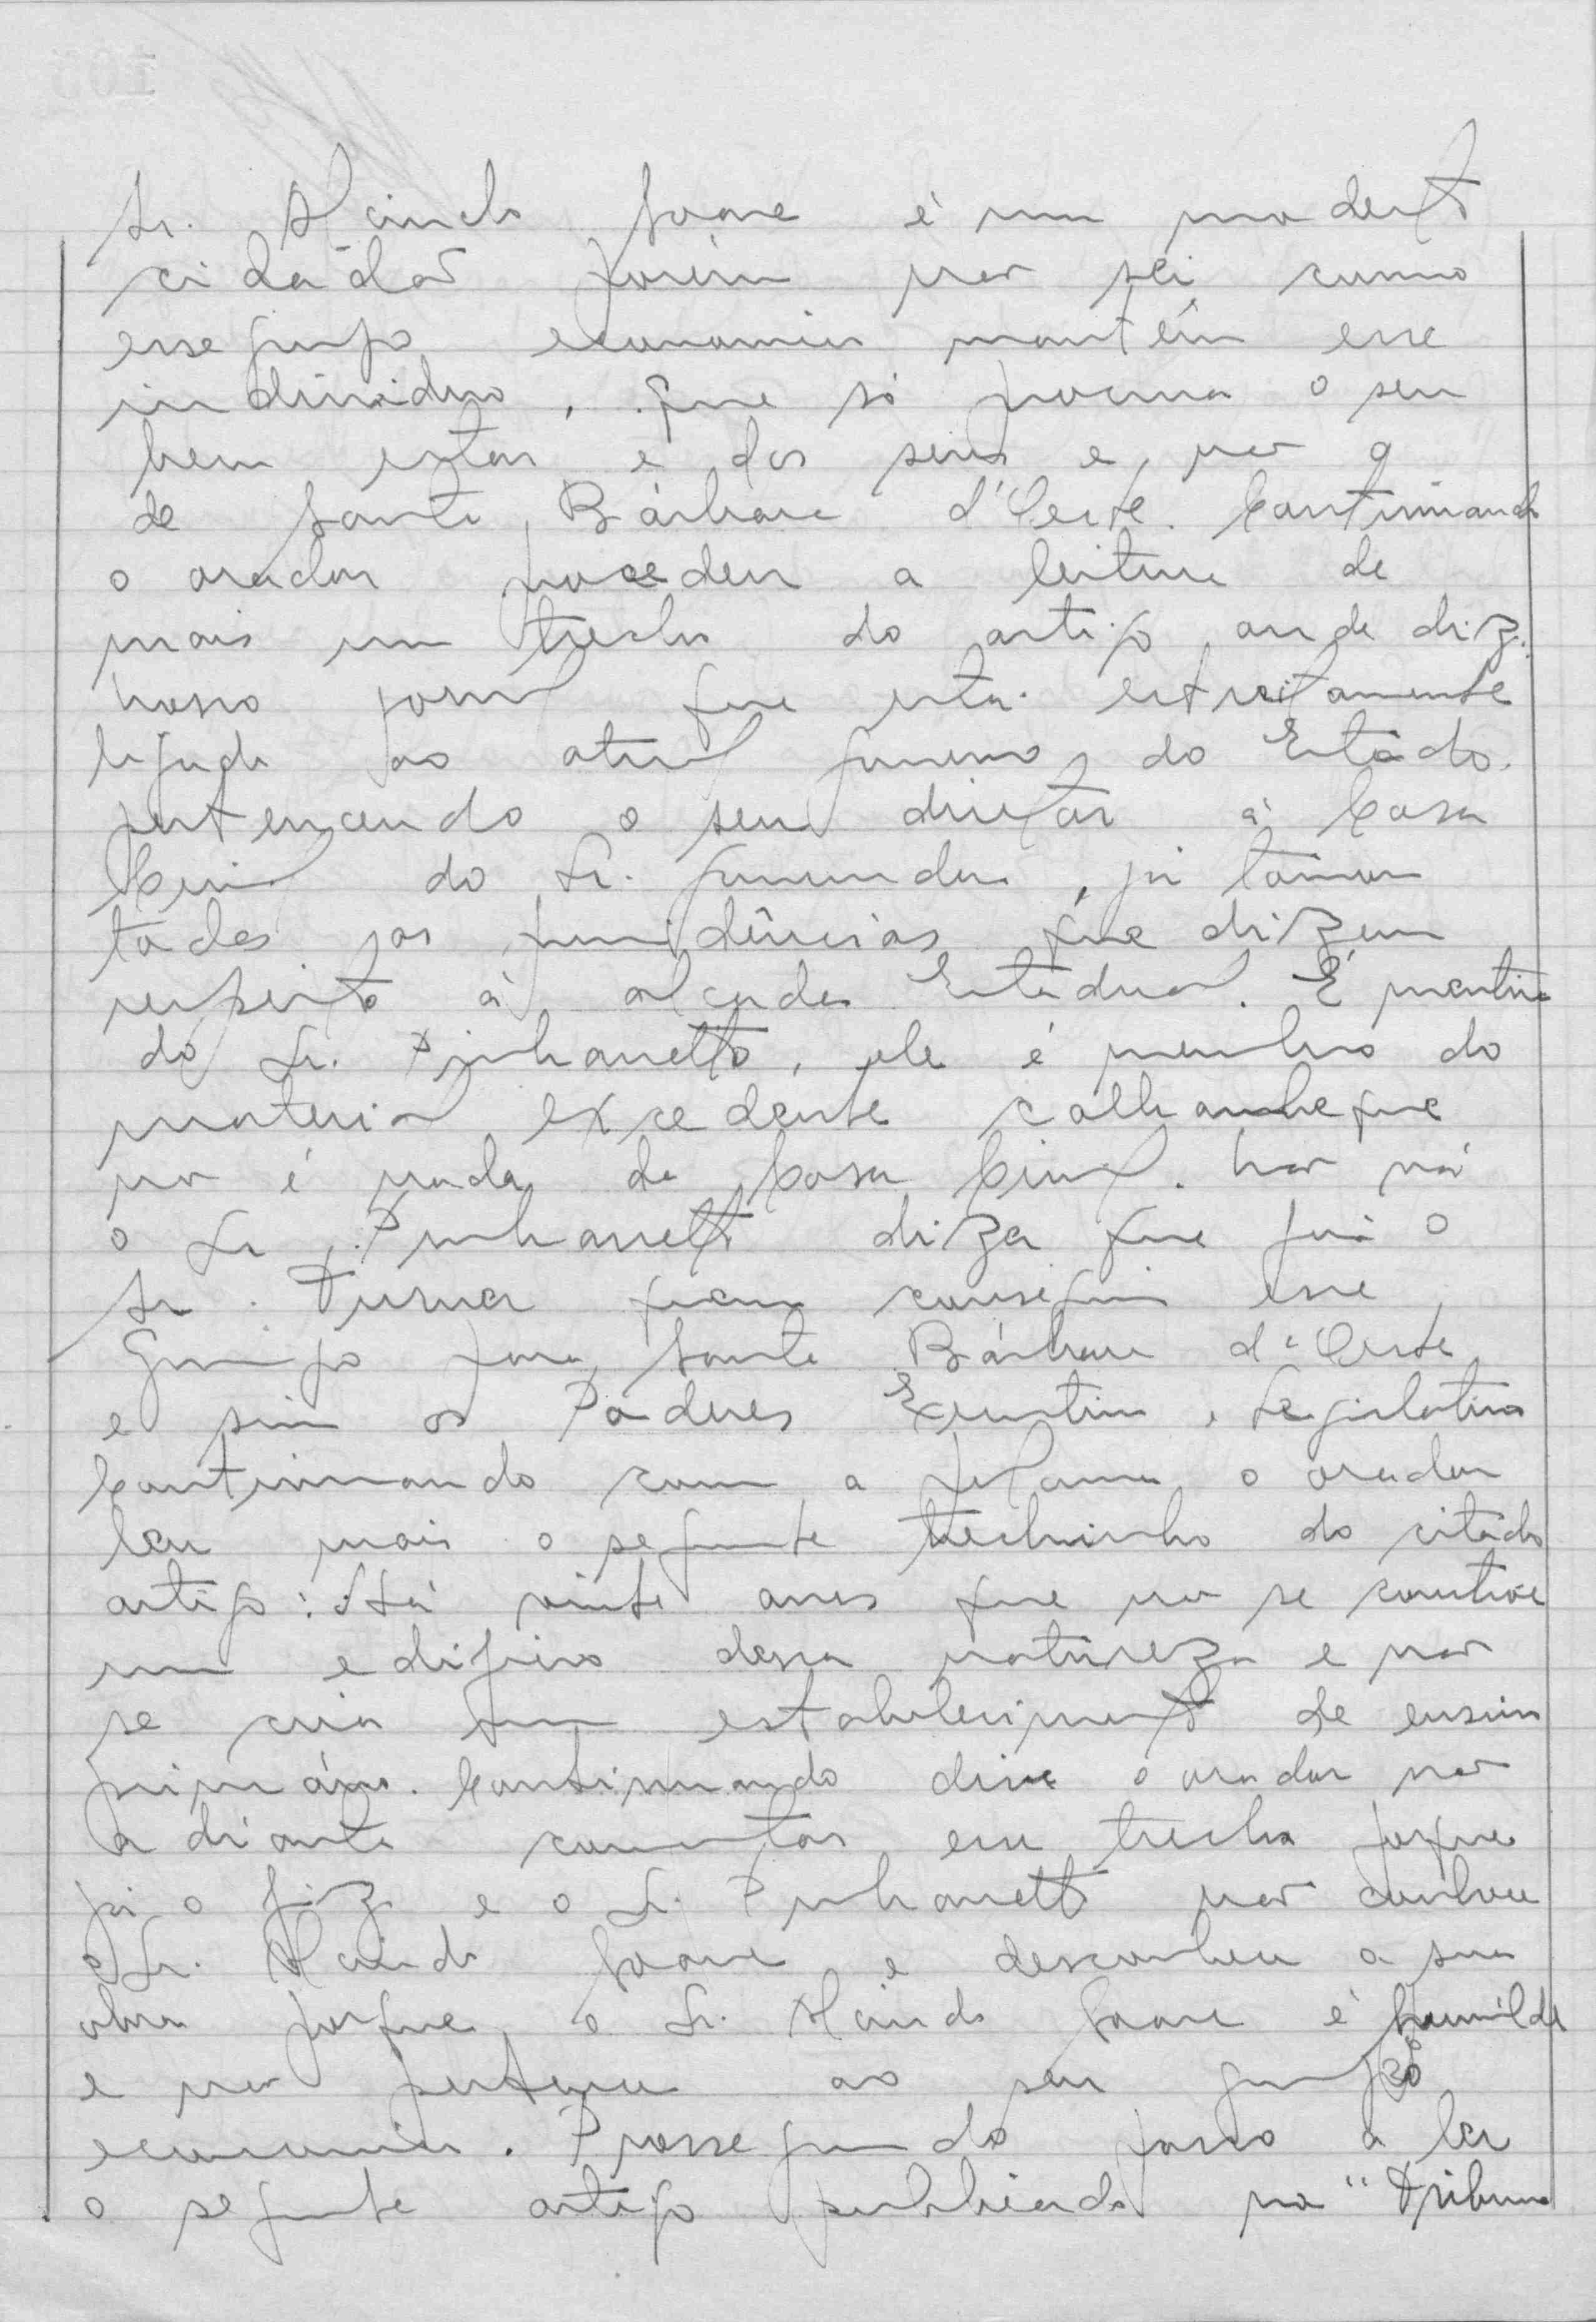 Sr. Alcindo é um modesto
cidadão porém não sei como
esse grupo economico mantêm esse
individuo, que só procura o seu
bem estar e dos seus e não o
de Santa Bárbara d'Oeste. Continuando
o orador procedeu a leitura de
mais um trecho do artigo onde diz:
nosso jornal que está estreitamente
ligado ao atual governo do Estado.
pertencendo o seu diretor à Casa
Civil do Sr. Governador, já tomou
todas as providências que dizem
respeito à alçada Estadual. É mentira
do Sr. Pinhanetto, ele é membro do
material excedente calhambeque
não é nada da Casa Civil. Não vá
o Sr. Pinhanetto dizer que foi o
Sr. quem conseguiu esse
Grupo para Santa Bárbara d'Oeste
e sim os Poderes Executivo e Legislativo
Continuando com a palavra o orador
leu mais o seguinte trechinho do citado
artigo: Há vinte anos que não se constroe
um edificio dessa natureza e não
se cria um estabelecimento de ensino
primário. Continuando disse o orador não
adianta comentar esse trecho porque
já o fiz e o Sr. Pinhanetto não conhece
o Sr. Alcindo e desconhece a sua
obra porque o Sr. Alcindo é humilde
e não pertence ao seu grupo
economico. Prosseguindo passo a ler
o seguinte artigo publicado na "Tribuna